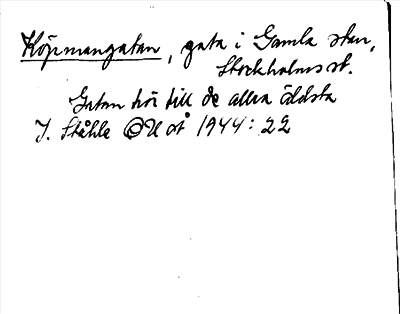 Köpmangatan, gata i Gamla stan,
Stockholms st.
Gatan hör till de allra äldsta
J. Ståhle OU st 1944: 22